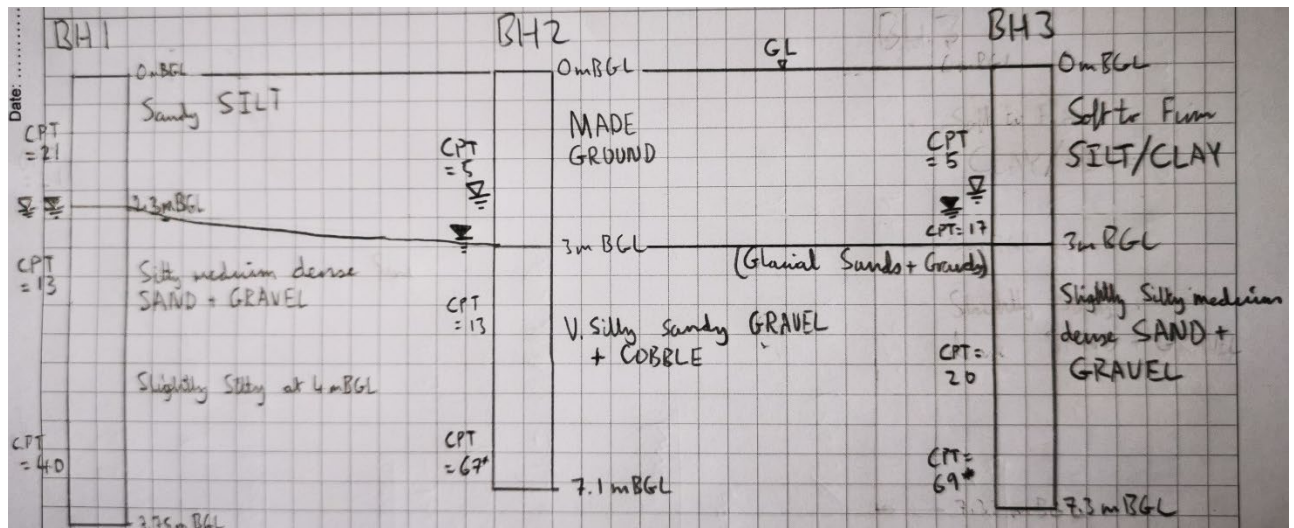 Date:
BH1
0mBGL
Sandy SILT
CPT
= 21
2.3mBGL
CPT
= 13
Silty medium dense
SAND + GRAVEL
Slightly Silty at 4mBGL
CPT
= 40
7.75mBGL
BH2
0mBGL
MADE
GROUND
CPT
= 5
3m BGL
CPT
= 13
V. Silty Sandy GRAVEL
+ COBBLE
CPT
= 67*
7.1mBGL
GL
(Glacial Sands + Gravels)
BH3
0mBGL
Soft to Firm
SILT/CLAY
CPT
= 5
CPT= 17
3m BGL
Slightly Silty medium
dense SAND +
GRAVEL
CPT=
20
CPT=
69*
7.3mBGL